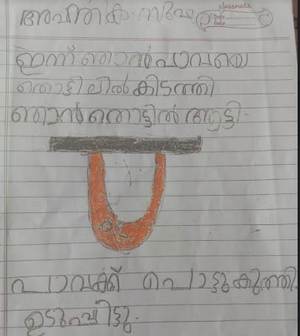 ഇന്ന് ഞാൻ പാവയെ
തൊട്ടിലിൽ കിടത്തി
ഞാൻ തൊട്ടിൽ ആട്ടി.
പാവക്ക് പൊട്ടുകുത്തി.
ഉടുപ്പിട്ടു.